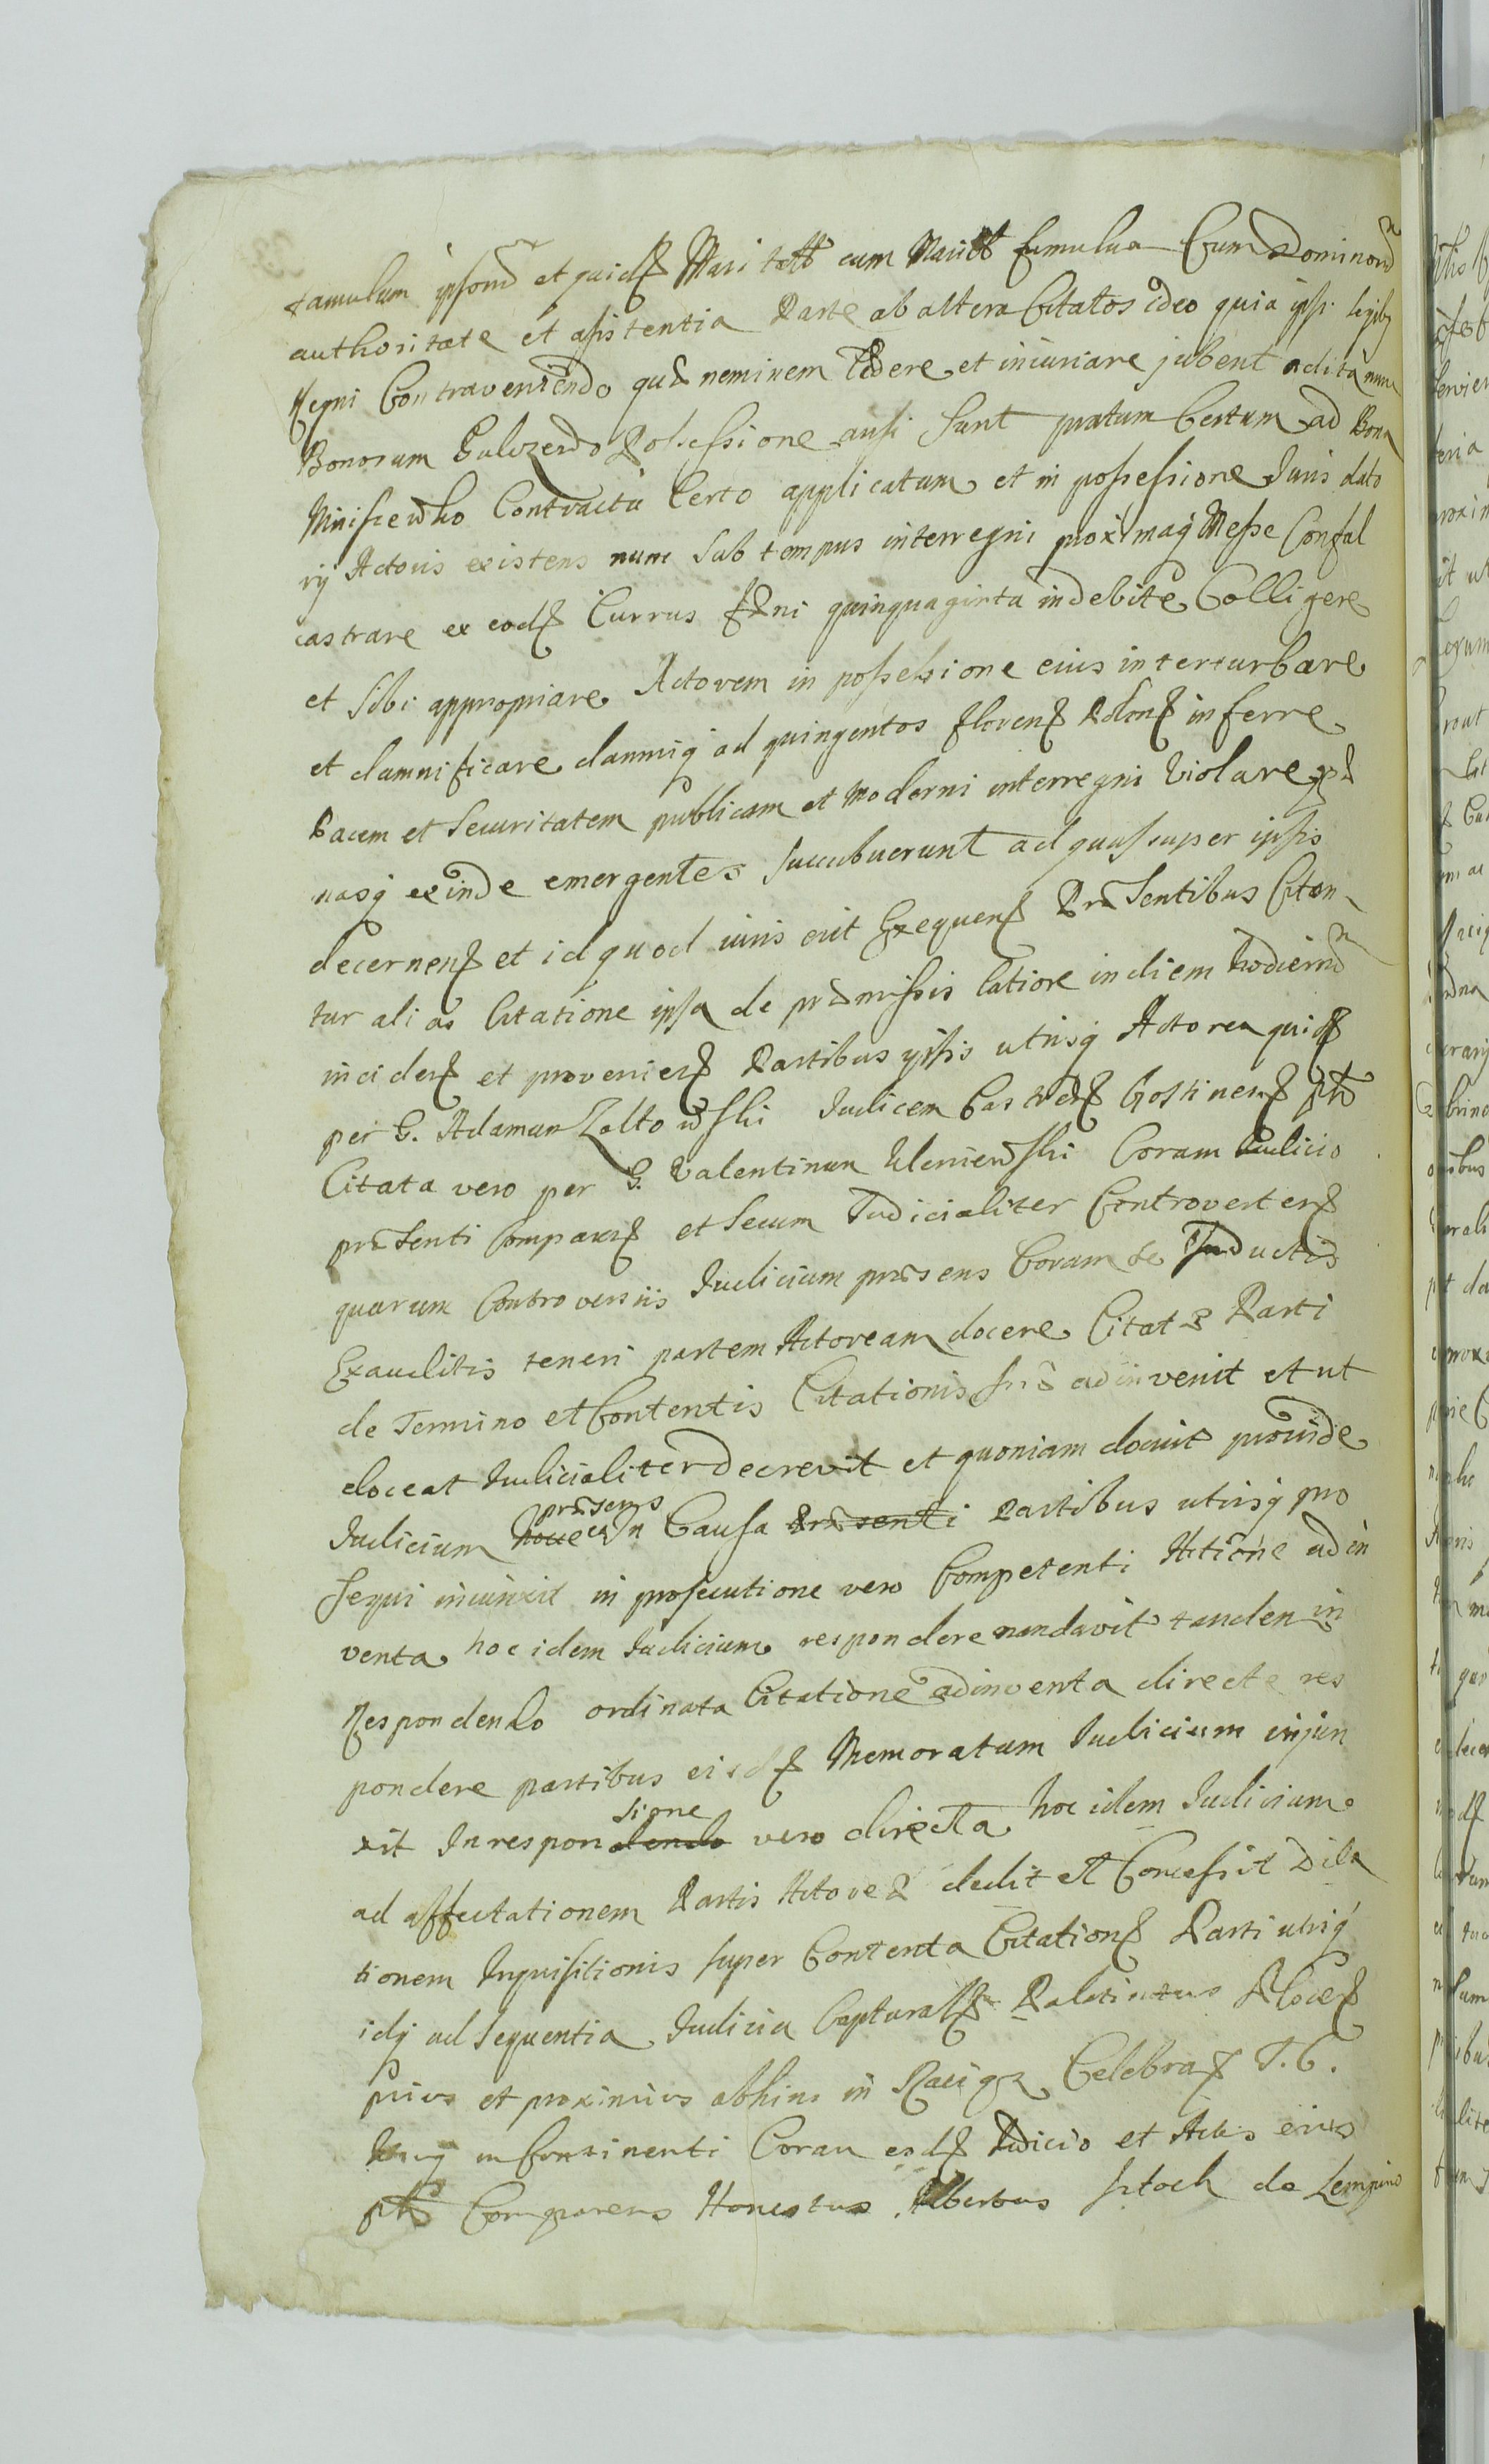 famulum ipsorum et quidem Maritatos cum Maritis famulum Eorum Dominorum
authoritate et assistentia Parte ab altera Citatos ideo quia ipsi legibus
Regni Contraveniendo quæ neminem lædere et iniuriare jubent adita nunc
Bonorum Possessione ausi sunt pratum Certum ad Bona
Miniszewko Contractu Certo applicatum et in possessione Juris dato
rij Actoris existens nunc sub tempus interregni proximaq Messe Confal
castrare ex eodem Currus fæni quinquaginta indebite Colligere
et sibi appropriare Actorem in possessione eius interturbare
et damnificare damniq ad quingentos florenos Polon inferre
Pacem et securitatem publicam et moderni interregni violare pæ
nasq exinde emergentes succubuerunt ad quas super ipsis
decernen et id quod iuris erit Exequen Præsentibus Citan
tur alias Citatione ipsa de præmissis latiore in diem hodiernum
inciden et provenien Partibus ipsis utrisq Actorea quidem
per G. Adamum Zoltowski Judicem Castren Gostinen pte
Citata vero per G. Valentinum Uleniewski Coram Judicio
præsenti Comparen et secum Judicialiter Controverten
quarum Controversiis Judicium præsens Coram se Inductis
Exauditis teneri partem Actoream docere Citatæ Parti
de Termino et Contentis Citationis suæ adinvenit et ut
doceat Judicialiter decrevit et quoniam docuit proinde
Judicium præsens In Causa Præsenti Partibus utrisq pro
sequi iniunxit in prosecutione vero Competenti Actione adin
venta hoc idem Judicium respondere mandavit tandem in
Respondendo ordinata Citatione adinventa directe res
pondere partibus eisdem Memoratum Judicium injun
xit In respondendo sione vero directa hoc idem Judicium
ad affectationem Partis Actoreæ dedit et Concessit Dila
tionem Inquisitionis super Contenta Citation Parti utriq
idq ad sequentia Judicia Capturalia Palatinatus Plocen
prius et proximius abhinc in Raciąż Celebran T. C.
in Continenti Coram eodem Judicio et Actis eius
pts Comparens Honestus Albertus Ptoch de Lempino